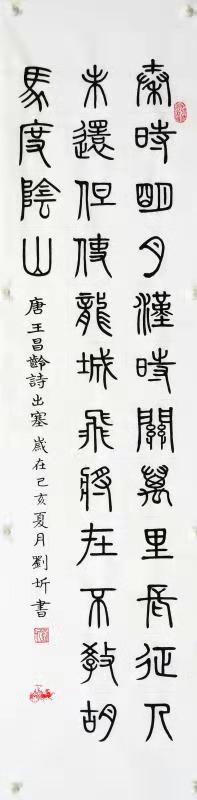 秦時明月漢時關萬里長征人
未還但使龍城飛將在不教胡
馬度陰山
唐王昌齡詩出塞歲在己亥夏月劉圻書